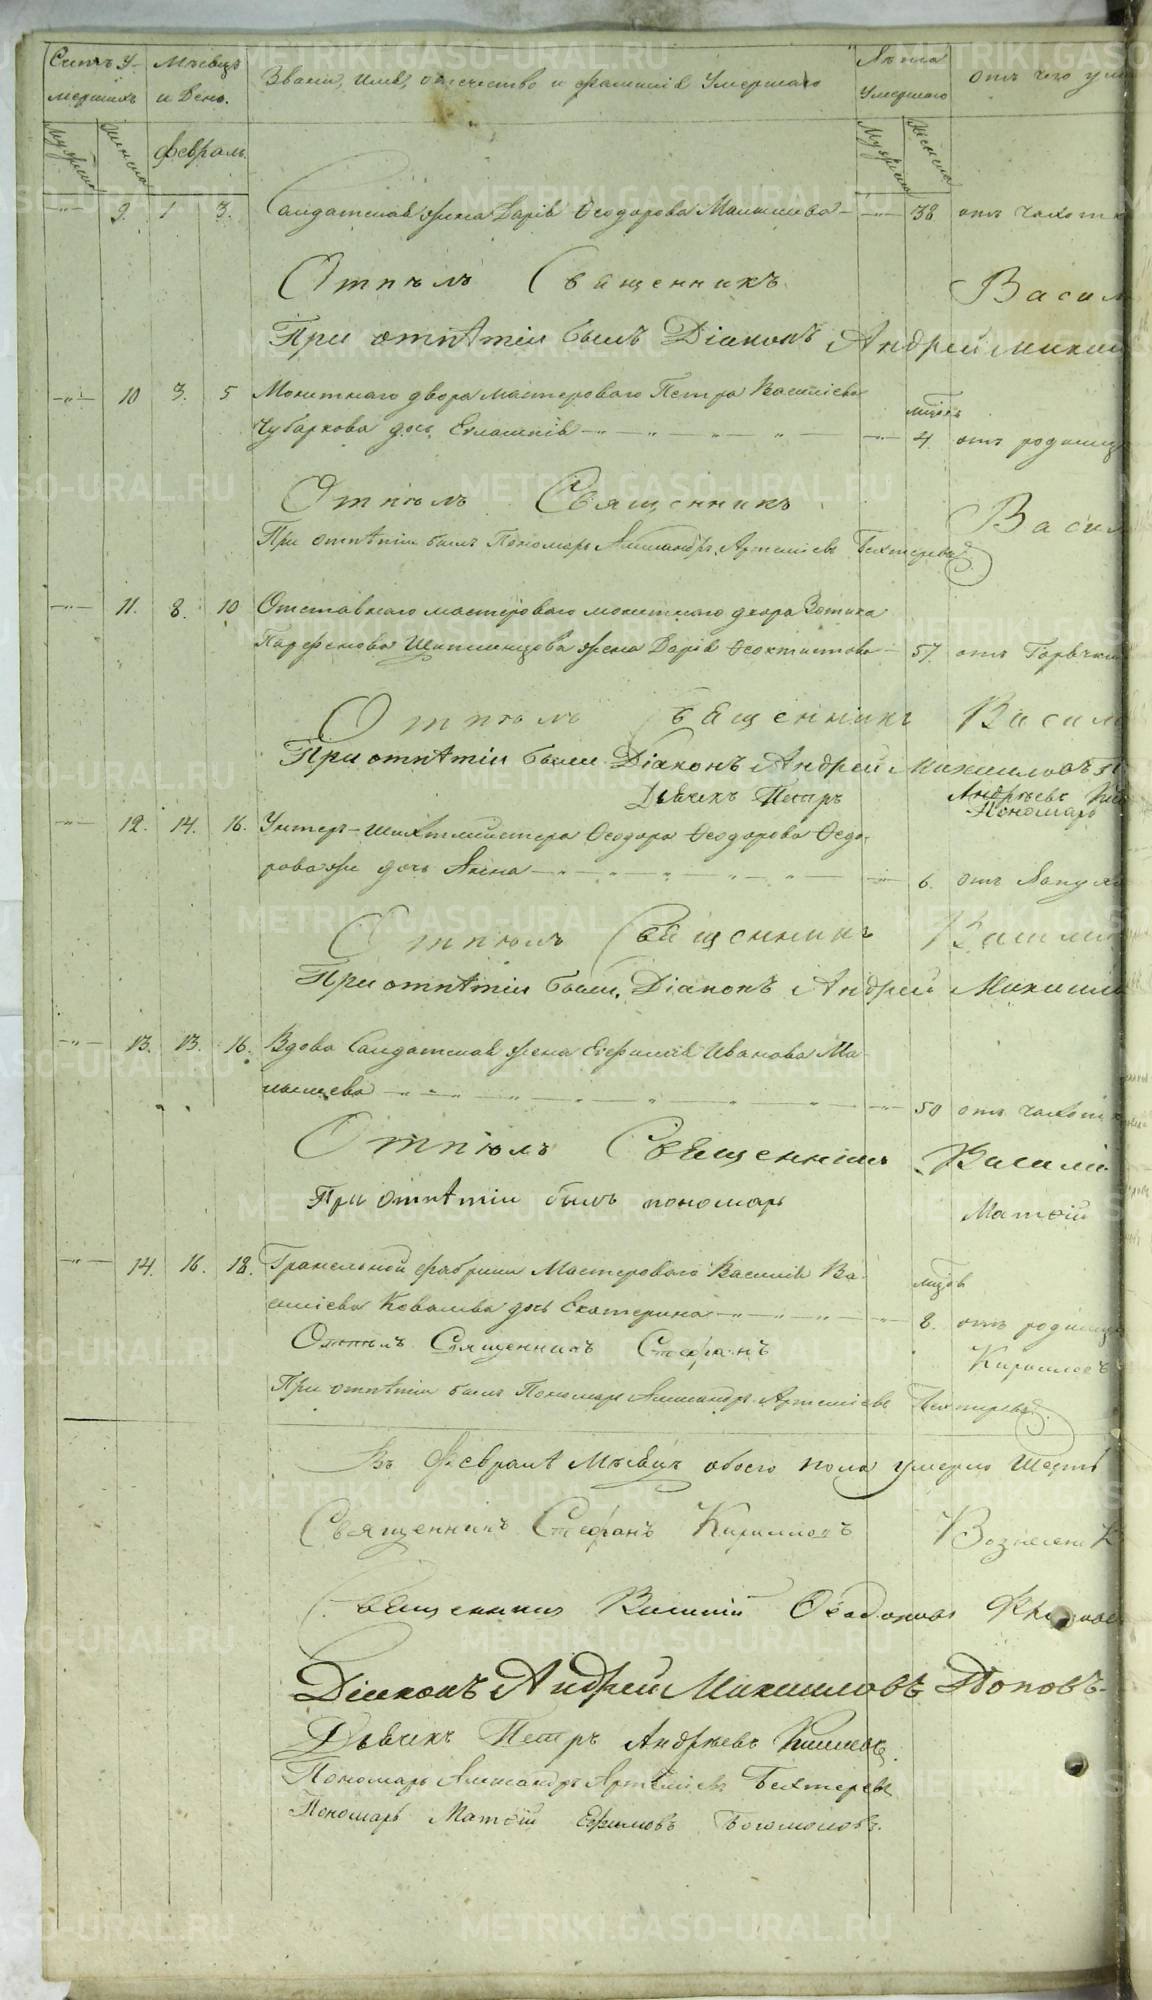 Счетъ у- Мѣсяцъ Званіе, имя, отечество и фамилія Умершаго Лѣта отъ чего уме
мершихъ и День. Умершаго
Мужеска Женска Февраль. Мужеска Женска
9. 1 3. Салдатская жена Дарія Ѳеодорова Малышева 38 отъ чахотк
Отпѣлъ Священникъ Васил
При отпѣтіи былъ Діаконъ Андрей Михаи
10 3. 5 Монетнаго двора мастероваго Петра Василіева мѣсяц
Чубаркова дочь 4. отъ родимц
Отпѣлъ Священникъ Васил
При отпѣтіи былъ Пономарь Александръ Артеміевъ Бехтеревъ
11. 8. 10 Отставнаго мастероваго монетнаго двора Зотика
Парфенова жена Дарія Ѳеоктистова 57. отъ Горячки
Отпѣлъ Священникъ Васил
При отпѣтіи были Діаконъ Андрей Михаиловъ
Дьячекъ Петръ Андрѣевъ
Пономарь
12. 14. 16. Унтеръ-шихтмейстера Ѳеодора Ѳеодорова Ѳедо-
рова же дочь Анна 6. отъ
Отпѣлъ Священникъ Васил
При отпѣтіи были, Діаконъ Андрей Михаил
13. 13. 16. Вдова Салдатская жена Евфимія Иванова Ма-
лышева 50 отъ чахотк
Отпѣлъ Священникъ Василі
При отпѣтіи былъ пономарь Матѳій
14. 16. 18. Гранильной фабрики Мастероваго Василія Ва-
силіева Ковалева дочь Екатерина 8. отъ родимц
Отпѣлъ Священникъ Стефанъ Кирилловъ
При отпѣтіи былъ Пономарь Александръ Артеміевъ Бехтеревъ
Въ Февралѣ Мѣсяцѣ обоего пола умерло Шесть
Священникъ Стефанъ Кирилловъ Вознесенск
Священникъ Василій
Діаконъ Андрей Михаиловъ Поповъ
Дьячекъ Петръ Андрѣевъ
Пономарь Александръ Артеміевъ Бехтеревъ
Пономарь Матѳій Ефимовъ Богомоловъ.
METRIKI.GASO-URAL.RU